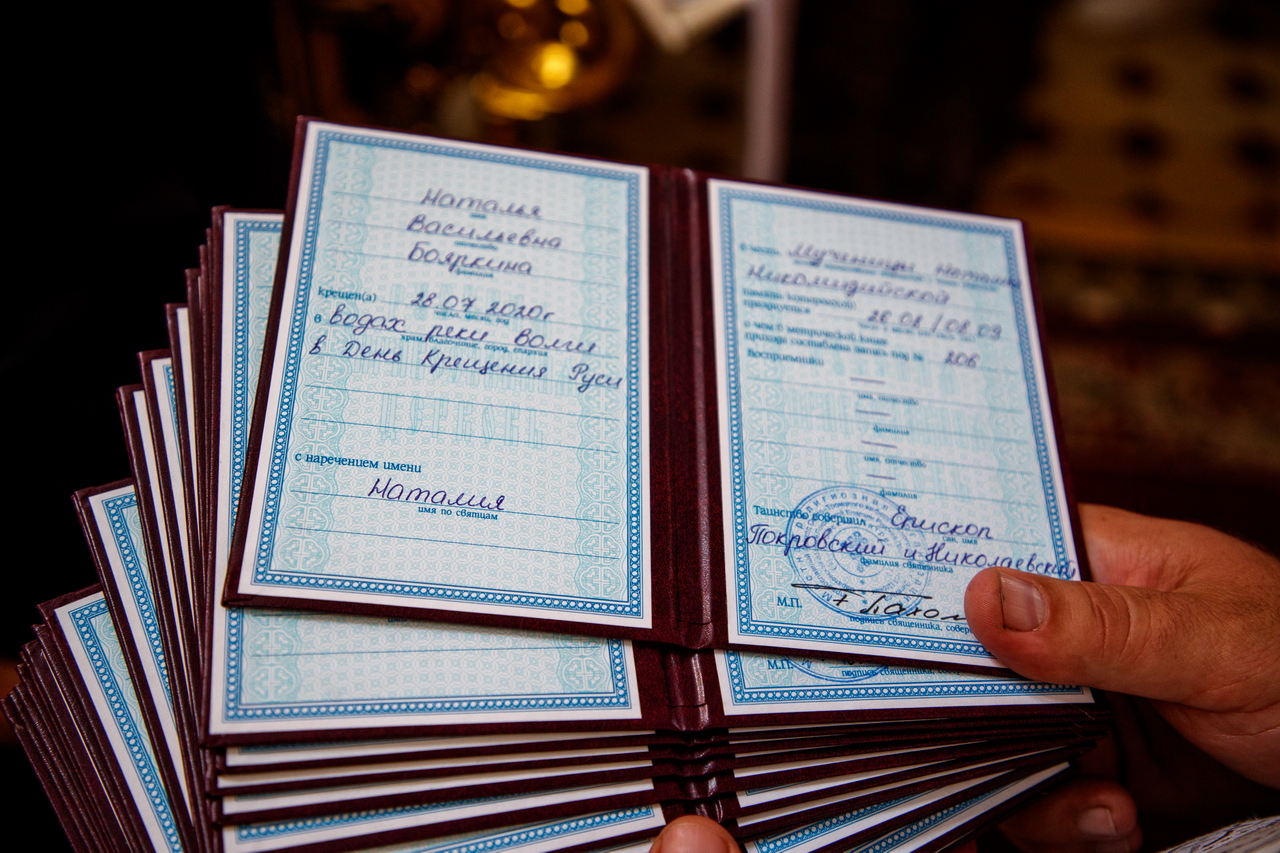 Наталья
имя
Васильевна
отчество
Бояркина
фамилия
крещен(а) 28.07.2020г
число, месяц, год
в водах реки Волги
храм, благочиние, город, епархия
в День Крещения Руси
ЦЕРКОВЬ
с наречением имени
Наталия
имя по святцам
В честь Мученицы Наталии
Никомидийской
память которой(го)
празднуется 26.08/08.09
о чем в метрической книге
прихода составлена запись под № 206
Восприемники
—
имя, отчество
—
фамилия
—
имя, отчество
—
фамилия
Таинство совершил Епископ
сан, имя
Покровский и Николаевский
фамилия священника
М.П. + Пахом
подпись священника, совер
М.П.